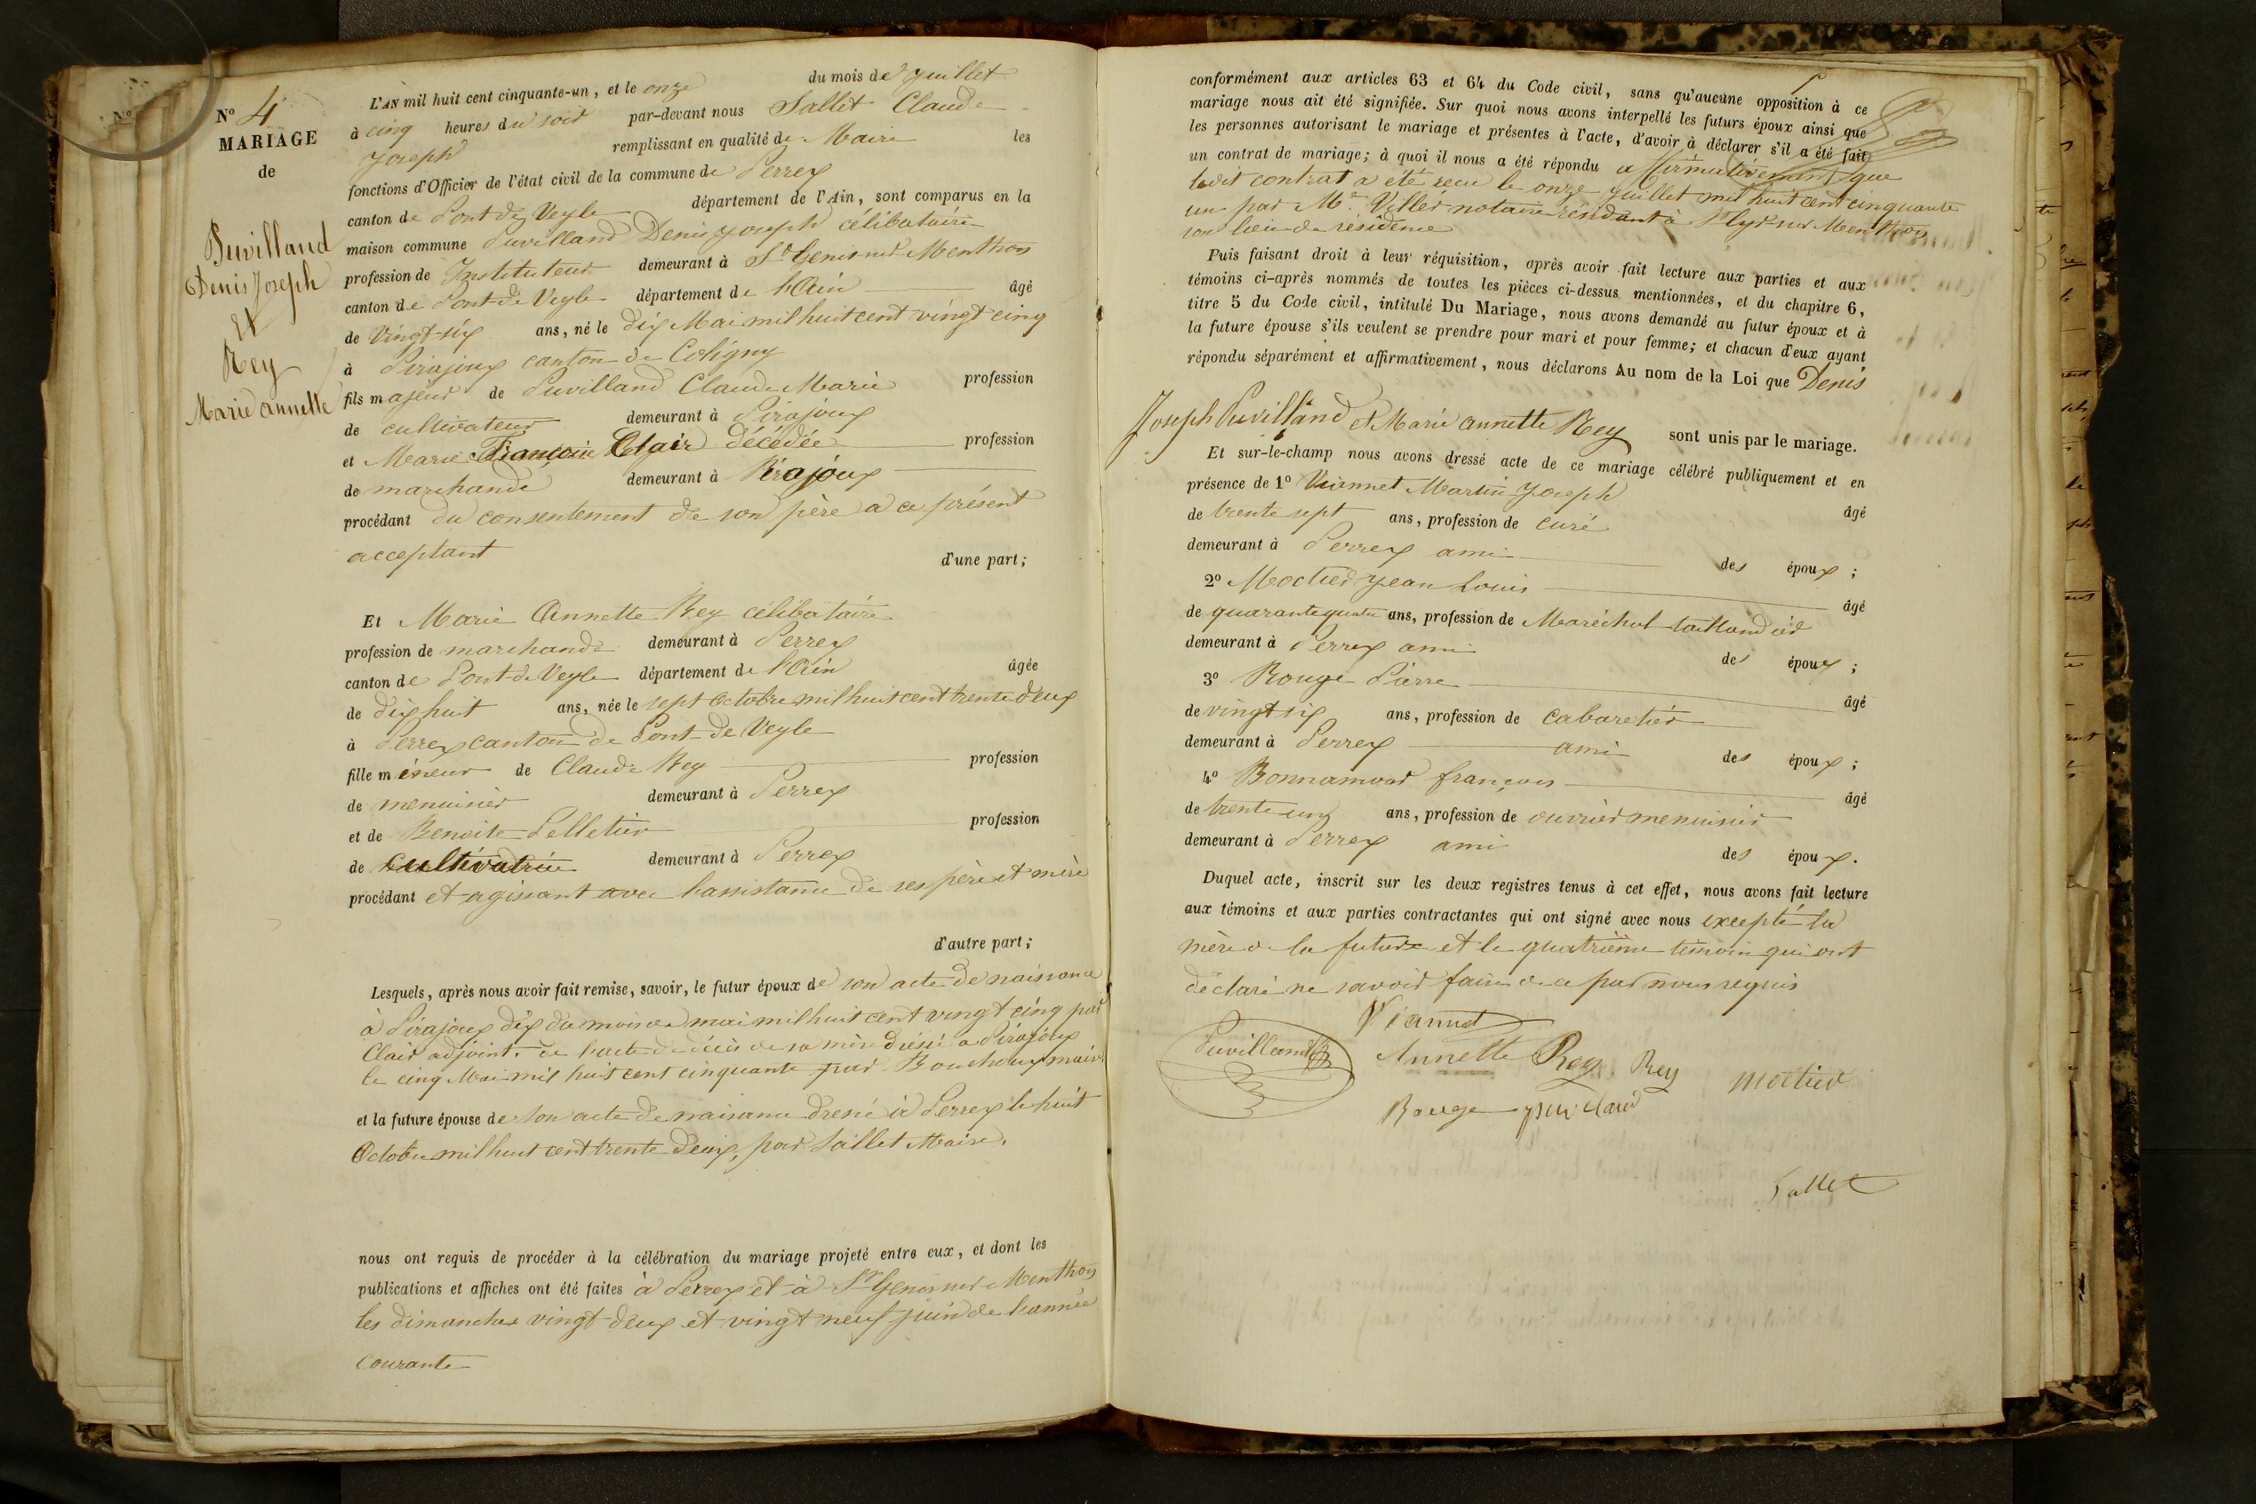 Nº 4
MARIAGE
de
Puvilland
Denis Joseph
Et
Rey
Marie annette
L'AN mil huit cent cinquante-un, et le onze du mois de Juillet
à cinq heures du soir par-devant nous Sallet Claude
Joseph remplissant en qualité de Maire les
fonctions d'Officier de l'état civil de la commune de Perrex
canton de Pont de Veyle département de l'Ain, sont comparus en la
maison commune Puvilland Denis Joseph célibataire
profession de Instituteur demeurant à St Genis sur Menthon
canton de Pont de Veyle département de l'Ain âgé
de Vingt-six ans, né le dix Mai mil huit cent vingt cinq
à Pirajoux canton de Coligny
fils majeur de Puvilland Claude Marie profession
de cultivateur demeurant à Pirajoux
et Marie Françoise Clair décédée profession
de marchande demeurant à Pirajoux
procédant du consentement de son père a ce présent
acceptant
d'une part;
Et Marie Annette Rey célibataire
profession de marchande demeurant à Perrex
canton de Pont de Veyle département de l'Ain âgée
de dix huit ans, née le sept Octobre mil huit cent trente deux
à Perrex canton de Pont de Veyle
fille mineur de Claude Rey profession
de menuisier demeurant à Perrex
et de Benoite Pelletier profession
de cultivatrice demeurant à Perrex
procédant et agissant avec l'assistance de ses père et mère
d'autre part;
Lesquels, après nous avoir fait remise, savoir, le futur époux de son acte de naissance
à Pirajoux dix du mois de mai mil huit cent vingt cinq par
Clair adjoint. de l'acte de décès de sa mère dressé a Pirajoux
le cinq Mai mil huit cent cinquante par Bouchoux maire
et la future épouse de son acte de naissance dressé à Perrex le huit
Octobre mil huit cent trente deux, par Sallet Maire.
nous ont requis de procéder à la célébration du mariage projeté entre eux, et dont les
publications et affiches ont été faites à Perrex et à St Genis sur Menthon
les dimanches vingt-deux et vingt neuf juin de l'année
courante
conformément aux articles 63 et 64 du Code civil, sans qu'aucune opposition à ce
mariage nous ait été signifiée. Sur quoi nous avons interpellé les futurs époux ainsi que
les personnes autorisant le mariage et présentes à l'acte, d'avoir à déclarer s'il a été fait
un contrat de mariage; à quoi il nous a été répondu affirmativement que
ledit contrat a été recu le onze Juillet mil huit cent cinquante
un par Me Villier notaire résidant à St Cyr sur Menthon
son lieu de résidence
Puis faisant droit à leur réquisition, après avoir fait lecture aux parties et aux
témoins ci-après nommés de toutes les pièces ci-dessus mentionnées, et du chapitre 6,
titre 5 du Code civil, intitulé Du Mariage, nous avons demandé au futur époux et à
la future épouse s'ils veulent se prendre pour mari et pour femme; et chacun d'eux ayant
répondu séparément et affirmativement, nous déclarons Au nom de la Loi que Denis
Joseph Puvilland et Marie annette Rey sont unis par le mariage.
Et sur-le-champ nous avons dressé acte de ce mariage célébré publiquement et en
présence de 1º Viannet Martin Joseph
de trente sept ans, profession de curé âgé
demeurant à Perrex ami des époux;
2º Moctier Jean Louis âgé
de quarante quatre ans, profession de Maréchal taillandier
demeurant à Perrex ami des époux;
3º Rouge Pierre âgé
de vingt six ans, profession de cabaretier
demeurant à Perrex ami des époux;
4º Bonnamour françois âgé
de trente cinq ans, profession de ouvrier menuisier
demeurant à Perrex ami des époux.
Duquel acte, inscrit sur les deux registres tenus à cet effet, nous avons fait lecture
aux témoins et aux parties contractantes qui ont signé avec nous excepté la
mère de la future et le quatrième témoin qui ont
déclaré ne savoir faire de ce par nous requis
Viannet
Puvilland Annette Rey Rey Moctier
Rouge puvilland
Sallet